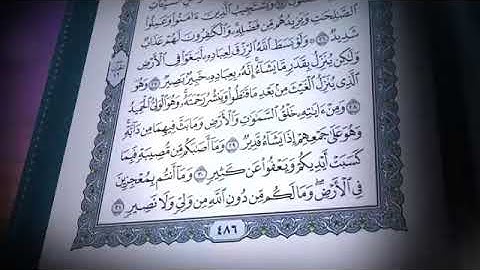 وَيَسْتَجِيبُ الَّذِينَ ءَامَنُوا وَعَمِلُوا
الصَّٰلِحَٰتِ وَيَزِيدُهُم مِّن فَضْلِهِۦ وَالْكَٰفِرُونَ لَهُمْ عَذَابٌ
شَدِيدٌ ٢٦ ۞ وَلَوْ بَسَطَ اللَّهُ الرِّزْقَ لِعِبَادِهِۦ لَبَغَوْا فِى الْأَرْضِ
وَلَٰكِن يُنَزِّلُ بِقَدَرٍ مَّا يَشَآءُ إِنَّهُۥ بِعِبَادِهِۦ خَبِيرٌۢ بَصِيرٌ ٢٧ وَهُوَ
الَّذِى يُنَزِّلُ الْغَيْثَ مِنۢ بَعْدِ مَا قَنَطُوا وَيَنشُرُ رَحْمَتَهُۥ وَهُوَ الْوَلِىُّ الْحَمِيدُ
٢٨ وَمِنْ ءَايَٰتِهِۦ خَلْقُ السَّمَٰوَٰتِ وَالْأَرْضِ وَمَا بَثَّ فِيهِمَا مِن دَآبَّةٍ
وَهُوَ عَلَىٰ جَمْعِهِمْ إِذَا يَشَآءُ قَدِيرٌ ٢٩ وَمَآ أَصَٰبَكُم مِّن مُّصِيبَةٍ فَبِمَا
كَسَبَتْ أَيْدِيكُمْ وَيَعْفُوا عَن كَثِيرٍ ٣٠ وَمَآ أَنتُم بِمُعْجِزِينَ
فِى الْأَرْضِ وَمَا لَكُم مِّن دُونِ اللَّهِ مِن وَلِىٍّ وَلَا نَصِيرٍ ٣١
٤٨٦